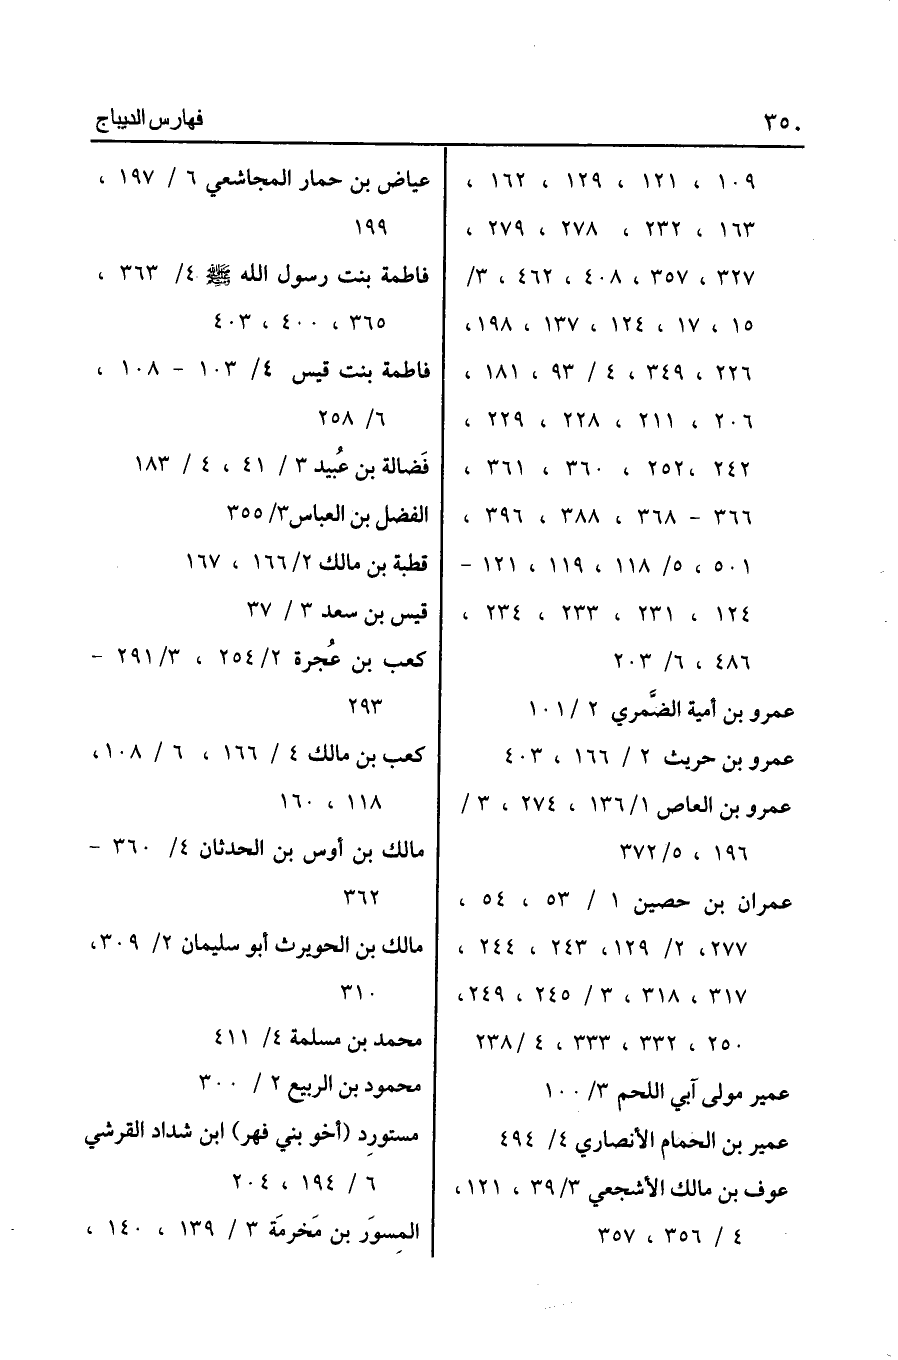 ٣٥٠
فهارس الديباج
١٠٩ ، ١٢١ ، ١٢٩ ، ١٦٢ ،
١٦٣ ، ٢٣٢ ، ٢٧٨ ، ٢٧٩ ،
٣٢٧ ، ٣٥٧ ، ٤٠٨ ، ٤٦٢ ، ٣/
١٥ ، ١٧ ، ١٢٤ ، ١٣٧ ، ١٩٨،
٢٢٦ ، ٣٤٩ ، ٤ / ٩٣ ، ١٨١ ،
٢٠٦ ، ٢١١ ، ٢٢٨ ، ٢٢٩ ،
٢٤٢ ،٢٥٢ ، ٣٦٠ ، ٣٦١ ،
٣٦٦ – ٣٦٨ ، ٣٨٨ ، ٣٩٦ ،
٥٠١ ، ٥/ ١١٨ ، ١١٩ ، ١٢١ –
١٢٤ ، ٢٣١ ، ٢٣٣ ، ٢٣٤ ،
٤٨٦ ، ٦/ ٢٠٣
عمرو بن أمية الضَّمري ٢ /١٠١
عمرو بن حريث ٢ / ١٦٦ ، ٤٠٣
عمرو بن العاص ١/ ١٣٦ ، ٢٧٤ ، ٣ /
١٩٦ ، ٥/ ٣٧٢
عمران بن حصين ١ / ٥٣ ، ٥٤ ،
٢٧٧، ٢/ ١٢٩، ٢٤٣ ، ٢٤٤ ،
٣١٧ ، ٣١٨ ، ٣ / ٢٤٥ ، ٢٤٩،
٢٥٠ ، ٣٣٢ ، ٣٣٣ ، ٤ /٢٣٨
عمير مولى آبي اللحم ٣/ ١٠٠
عمير بن الحمام الأنصاري ٤/ ٤٩٤
عوف بن مالك الأشجعي ٣/ ٣٩ ، ١٢١،
٤ / ٣٥٦ ، ٣٥٧
عياض بن حمار المجاشعي ٦ / ١٩٧ ،
١٩٩
فاطمة بنت رسول الله ﷺ ٤/ ٣٦٣ ،
٣٦٥ ، ٤٠٠ ، ٤٠٣
فاطمة بنت قيس ٤/ ١٠٣ – ١٠٨ ،
٦/ ٢٥٨
فَضالة بن عُبيد ٣ / ٤١ ، ٤ / ١٨٣
الفضل بن العباس٣/ ٣٥٥
قطبة بن مالك ٢/ ١٦٦ ، ١٦٧
قيس بن سعد ٣ / ٣٧
كعب بن عُجرة ٢/ ٢٥٤ ، ٣/ ٢٩١ –
٢٩٣
كعب بن مالك ٤ / ١٦٦ ، ٦ / ١٠٨،
١١٨ ، ١٦٠
مالك بن أوس بن الحدثان ٤/ ٣٦٠ –
٣٦٢
مالك بن الحويرث أبو سليمان ٢/ ٣٠٩،
٣١٠
محمد بن مسلمة ٤/ ٤١١
محمود بن الربيع ٢ / ٣٠٠
مستورِد (أخو بني فهر) ابن شداد القرشي
٦ / ١٩٤ ، ٢٠٤
المِسوَر بن مَخرمَة ٣ / ١٣٩ ، ١٤٠ ،